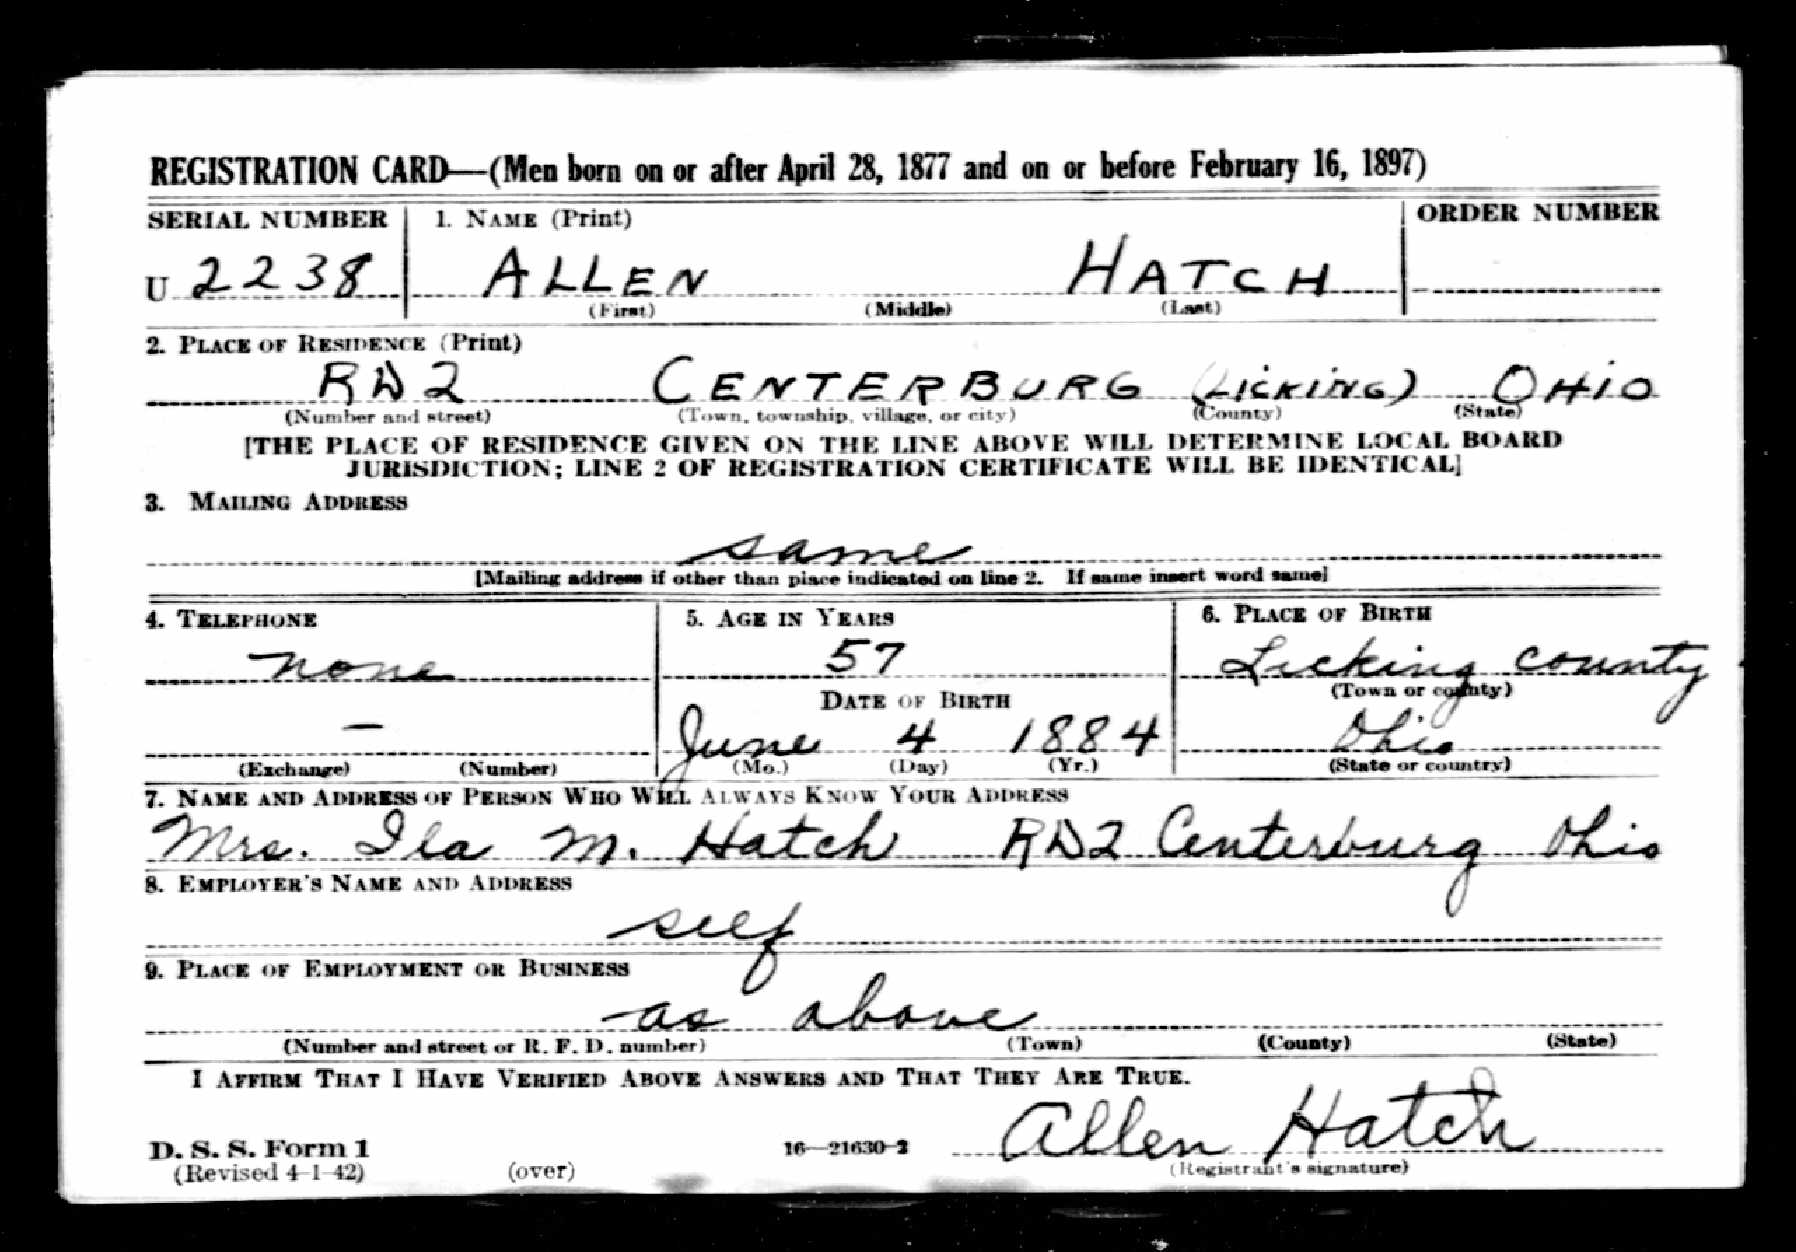 REGISTRATION CARD—(Men born on or after April 28, 1877 and on or before February 16, 1897)
SERIAL NUMBER 1. NAME (Print) ORDER NUMBER
U 2238 ALLEN HATCH
(First) (Middle) (Last)
2. PLACE OF RESIDENCE (Print)
RD2 CENTERBURG (LICKING) OHIO
(Number and street) (Town, township, village, or city) (County) (State)
[THE PLACE OF RESIDENCE GIVEN ON THE LINE ABOVE WILL DETERMINE LOCAL BOARD
JURISDICTION; LINE 2 OF REGISTRATION CERTIFICATE WILL BE IDENTICAL]
3. MAILING ADDRESS
same
[Mailing address if other than place indicated on line 2. If same insert word same]
4. TELEPHONE 5. AGE IN YEARS 6. PLACE OF BIRTH
none 57 Licking county
DATE OF BIRTH (Town or county)
– June 4 1884 Ohio
(Exchange) (Number) (Mo.) (Day) (Yr.) (State or country)
7. NAME AND ADDRESS OF PERSON WHO WILL ALWAYS KNOW YOUR ADDRESS
Mrs. Ila M. Hatch RD2 Centerburg Ohio
8. EMPLOYER'S NAME AND ADDRESS
self
9. PLACE OF EMPLOYMENT OR BUSINESS
as above
(Number and street or R. F. D. number) (Town) (County) (State)
I AFFIRM THAT I HAVE VERIFIED ABOVE ANSWERS AND THAT THEY ARE TRUE.
Allen Hatch
D. S. S. Form 1 16—21630-2
(Revised 4-1-42) (over) (Registrant's signature)